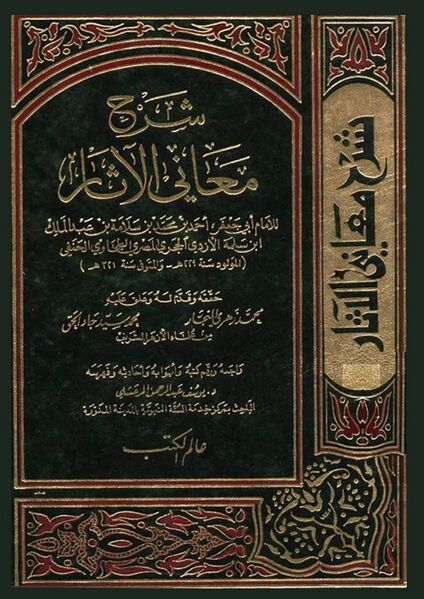 شرح
معاني الآثار
للإمام أبي جعفر أحمد بن محمد بن سلامة بن عبد الملك
ابن سلمة الأزدي الحجري المصري الطحاوي الحنفي
(المولود سنة ٢٢٩ هـ، والمتوفى سنة ٣٢١ هـ)
حققه وقدم له وعلق عليه
محمد زهري النجار محمد سيد جاد الحق
من علماء الأزهر الشريف
راجعه ورقم كتبه وأبوابه وأحاديثه وفهرسه
د. يوسف عبد الرحمن المرعشلي
الباحث بمركز خدمة السنة النبوية بالمدينة المنورة
عالم الكتب
شرح معاني الآثار